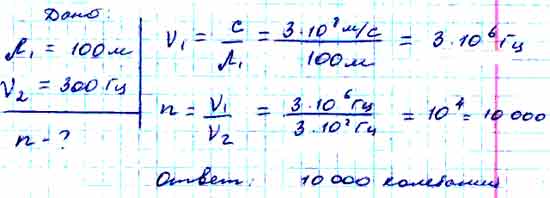 Дано:
λ₁ = 100 м
ν₂ = 300 Гц
n - ?
ν₁ = c/λ₁ = 3·10⁸ м/с / 100 м = 3·10⁶ Гц
n = ν₁/ν₂ = 3·10⁶ Гц / 3·10² Гц = 10⁴ = 10 000
Ответ: 10 000 колебаний